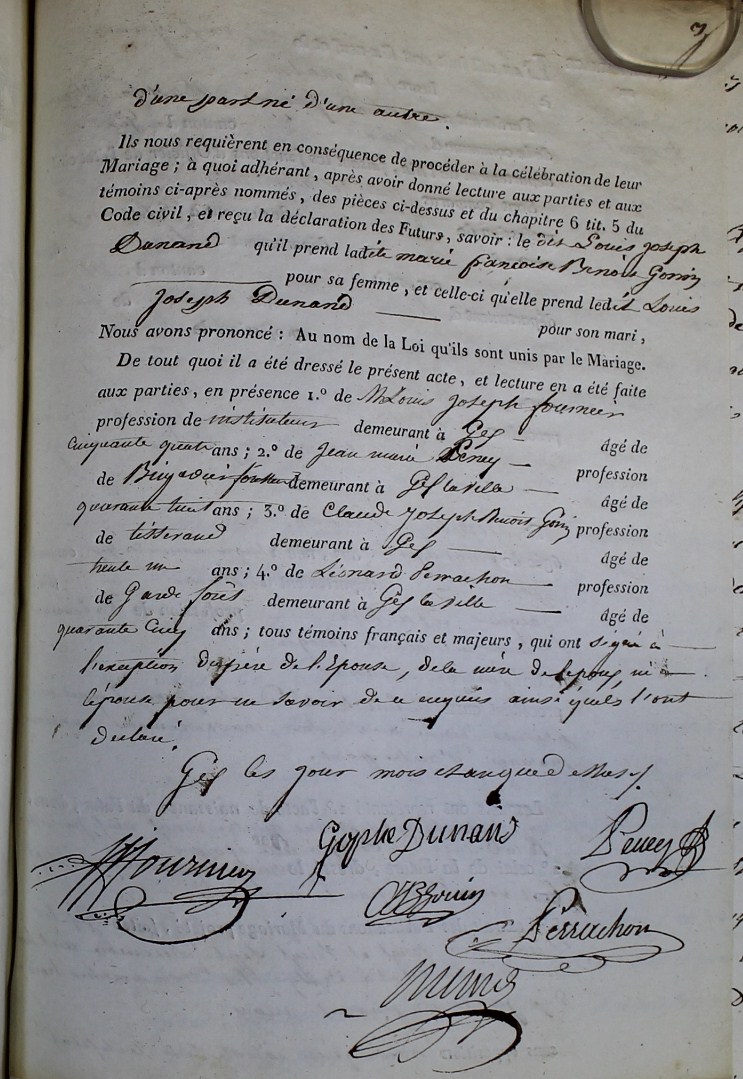 d'une part né d'une autre.
Ils nous requièrent en conséquence de procéder à la célébration de leur
Mariage ; à quoi adhérant, après avoir donné lecture aux parties et aux
témoins ci-après nommés, des pièces ci-dessus et du chapitre 6 tit. 5 du
Code civil, et reçu la déclaration des Futurs, savoir : le dit Louis joseph
Dunand qu'il prend ladite marie françoise Benoite Gonin
pour sa femme, et celle-ci qu'elle prend ledit Louis
Joseph Dunand pour son mari,
Nous avons prononcé : Au nom de la Loi qu'ils sont unis par le Mariage.
De tout quoi il a été dressé le présent acte, et lecture en a été faite
aux parties, en présence 1.º de M Louis joseph fournier
profession de instituteur demeurant à Gex âgé de
cinquante quatre ans ; 2.º de jean marie Peney profession
de Brigadier demeurant à Gex la ville âgé de
quarante huit ans ; 3.º de Claude joseph Benoit Gonin profession
de tisserand demeurant à Gex âgé de
trente un ans ; 4.º de Léonard Perrachon profession
de Garde forêt demeurant à Gex la ville âgé de
quarante cinq ans ; tous témoins français et majeurs, qui ont signé à
l'exception du père de l'Epouse, de la mère de lepoux, ni
l'épouse pour ne savoir de ce enquis ainsi quels l'ont
declaré.
Gex les jour mois et an que dessus.
Fournier
Gophe Dunand
Peney
Gonin
Perrachon